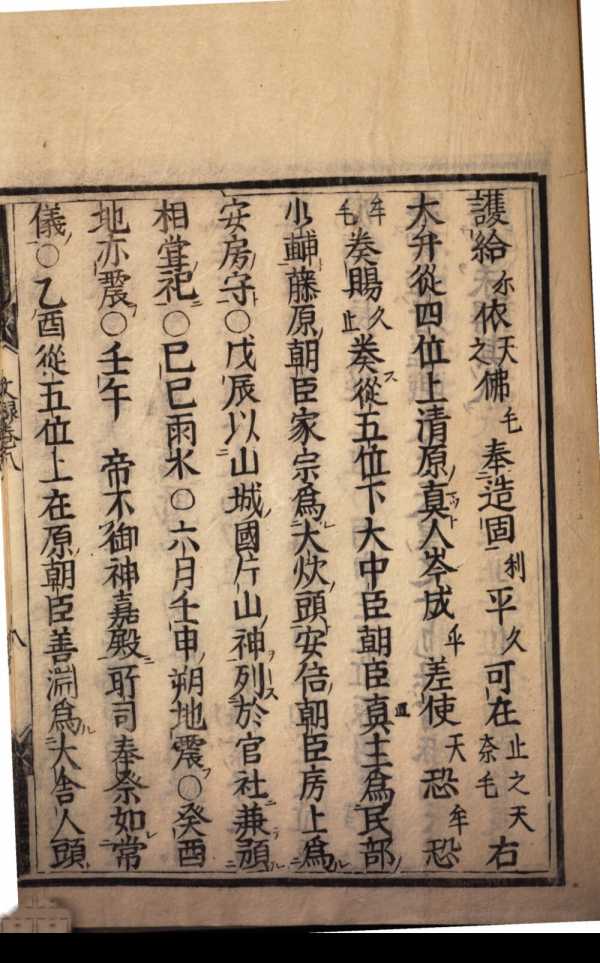 護給尓依天之佛毛奉造固利平久可在止之天奈毛右
大弁從四位上清原真人岑成乎差使天恐牟恐
牟毛奏賜久止奏從五位下大中臣朝臣真主為民部
少輔藤原朝臣家宗為大炊頭安倍朝臣房上為
安房守○戊辰以山城國片山神列於官社兼預
相甞祀○己巳雨水○六月壬申朔地震○癸酉
地亦震○壬午 帝不御神嘉殿所司奉祭如常
儀○乙酉從五位上在原朝臣善淵為大舎人頭